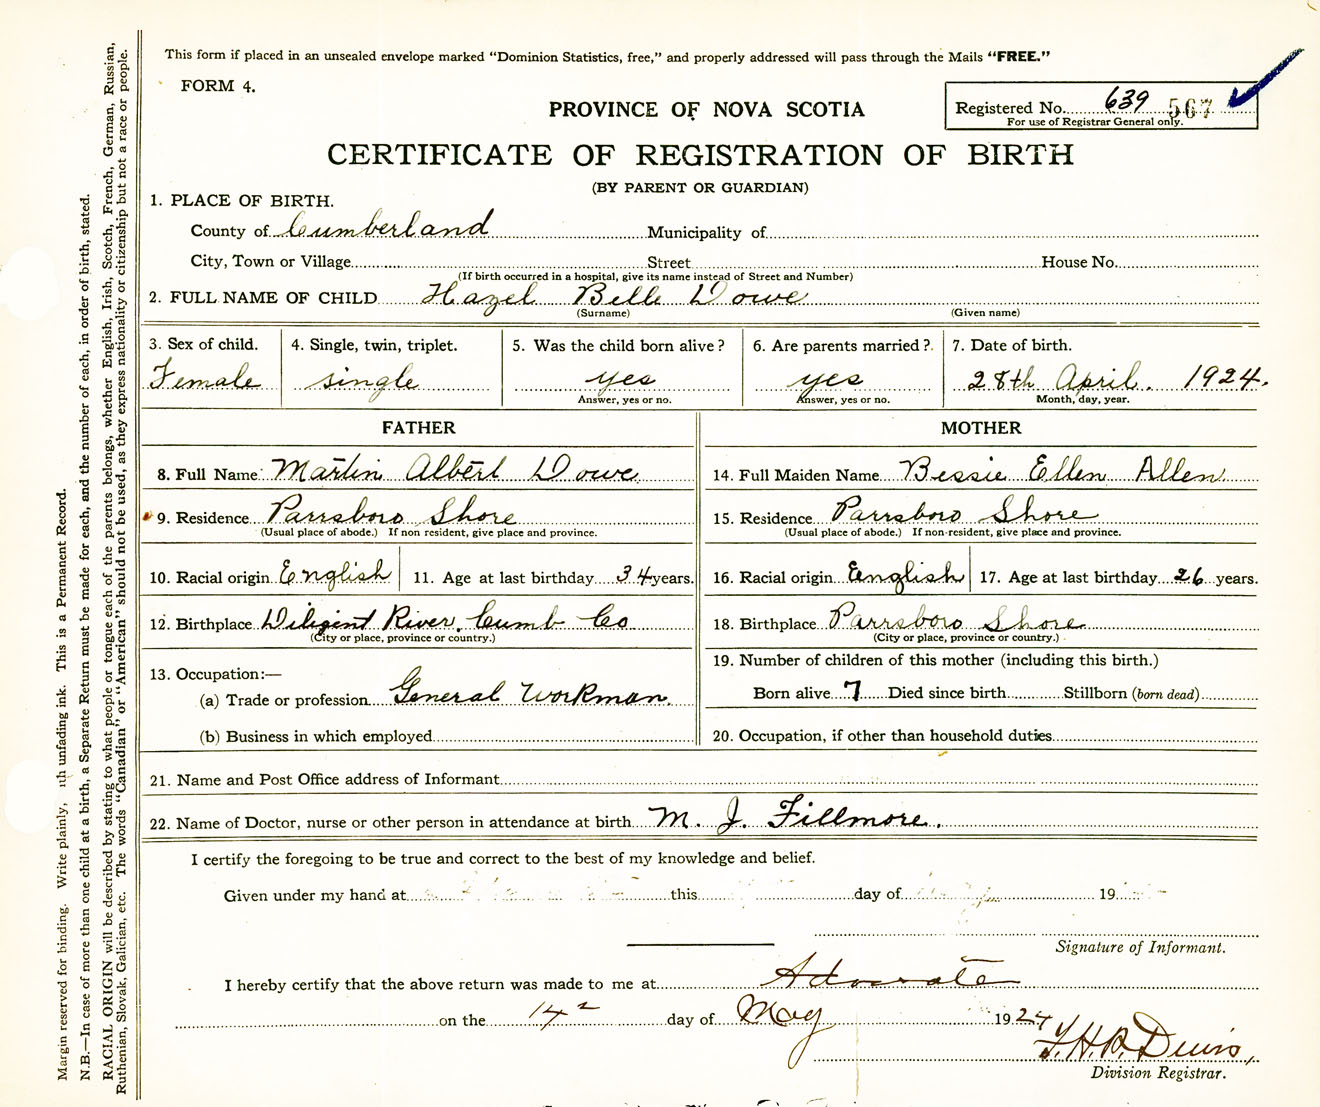 This form if placed in an unsealed envelope marked “Dominion Statistics, free,” and properly addressed will pass through the Mails “FREE.”
FORM 4.
Registered No. 639 567
For use of Registrar General only.
PROVINCE OF NOVA SCOTIA
CERTIFICATE OF REGISTRATION OF BIRTH
(BY PARENT OR GUARDIAN)
1. PLACE OF BIRTH.
County of Cumberland Municipality of
City, Town or Village Street House No.
(If birth occurred in a hospital, give its name instead of Street and Number)
2. FULL NAME OF CHILD Hazel Belle Dowe
(Surname) (Given name)
3. Sex of child. 4. Single, twin, triplet. 5. Was the child born alive? 6. Are parents married? 7. Date of birth.
Female single yes yes 28th April. 1924.
Answer, yes or no. Answer, yes or no. Month, day, year.
FATHER MOTHER
8. Full Name Martin Albert Dowe 14. Full Maiden Name Bessie Ellen Allen
9. Residence Parrsboro Shore 15. Residence Parrsboro Shore
(Usual place of abode.) If non resident, give place and province. (Usual place of abode.) If non-resident, give place and province.
10. Racial origin English 11. Age at last birthday 34 years. 16. Racial origin English 17. Age at last birthday 26 years.
12. Birthplace Diligent River, Cumb Co 18. Birthplace Parrsboro Shore
(City or place, province or country.) (City or place, province or country.)
19. Number of children of this mother (including this birth.)
13. Occupation:—
(a) Trade or profession General Workman. Born alive 7 Died since birth Stillborn (born dead)
(b) Business in which employed 20. Occupation, if other than household duties
21. Name and Post Office address of Informant
22. Name of Doctor, nurse or other person in attendance at birth M. J. Fillmore.
I certify the foregoing to be true and correct to the best of my knowledge and belief.
Given under my hand at this day of 19
Signature of Informant.
I hereby certify that the above return was made to me at Advocate
on the 14 day of May 1924
Division Registrar.
Margin reserved for binding. Write plainly, unfading ink. This is a Permanent Record.
N.B.—In case of more than one child at a birth, a Separate Return must be made for each, and the number of each, in order of birth, stated.
RACIAL ORIGIN will be described by stating to what people or tongue each of the parents belongs, whether English, Irish, Scotch, French, German, Russian,
Ruthenian, Slovak, Galician, etc. The words “Canadian” or “American” should not be used, as they express nationality or citizenship but not a race or people.